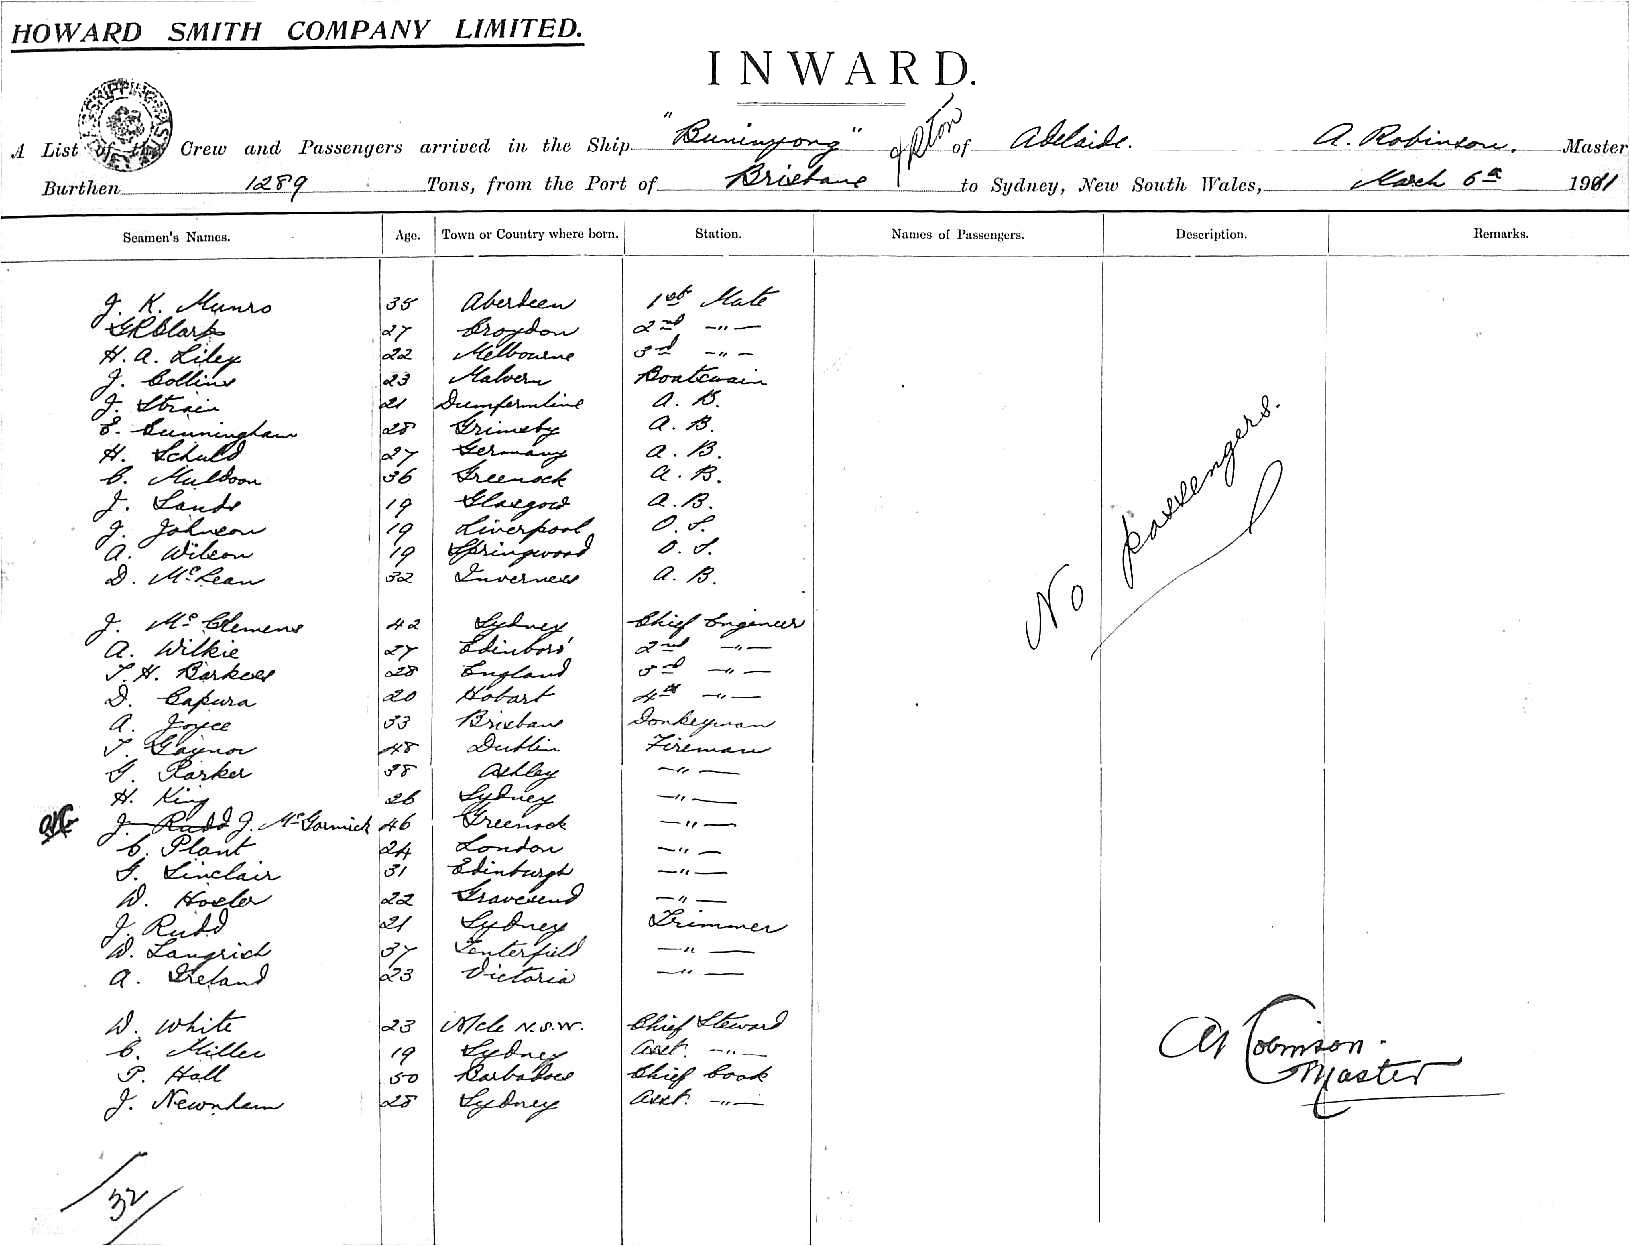 HOWARD SMITH COMPANY LIMITED.
INWARD.
A List of the Crew and Passengers arrived in the Ship "Buninyong" of Adelaide. A. Robinson. Master
Burthen 1289 Tons, from the Port of Brisbane to Sydney, New South Wales, March 6th 1901
Seamen's Names. Age. Town or Country where born. Station. Names of Passengers. Description. Remarks.
J. K. Munro 35 Aberdeen 1st Mate
G R Clark 27 Croydon 2nd -"-
H. A. Liley 22 Melbourne 3rd -"-
J. Collins 23 Malvern Boatswain
J. Strain 21 Dumfermline A. B.
E. Cunningham 28 Grimsby A. B.
H. Schuld 27 Germany A. B.
C. Muldoon 36 Greenock A. B.
J. Sands 19 Glasgow A. B.
J. Johnson 19 Liverpool O. S.
A. Wilson 19 Springwood O. S.
D. McLean 32 Inverness A. B.
No passengers.
J. McClemens 42 Sydney Chief Engineer
A. Wilkie 27 Edinboro' 2nd -"-
T. H. 28 England 3rd -"-
D. Capura 20 Hobart 4th -"-
A. Joyce 33 Brisbane Donkeyman
T. Gaynor 48 Dublin Fireman
G. Parker 38 Ashley -"-
H. King 26 Sydney -"-
J. Rudd J. McGormick 46 Greenock -"-
C. Plant 24 London -"-
G. Sinclair 31 Edinburgh -"-
W. Hosler 22 Gravesend -"-
J. Rudd 21 Sydney Trimmer
W. Langrich 37 Tenterfield -"-
A. Ireland 23 Victoria -"-
W. White 23 N/cle N.S.W. Chief Steward
C. Miller 19 Sydney Asst. -"-
P. Hall 50 Barbadoes Chief Cook
J. Newnham 28 Sydney Asst. -"-
A Robinson.
Master
32